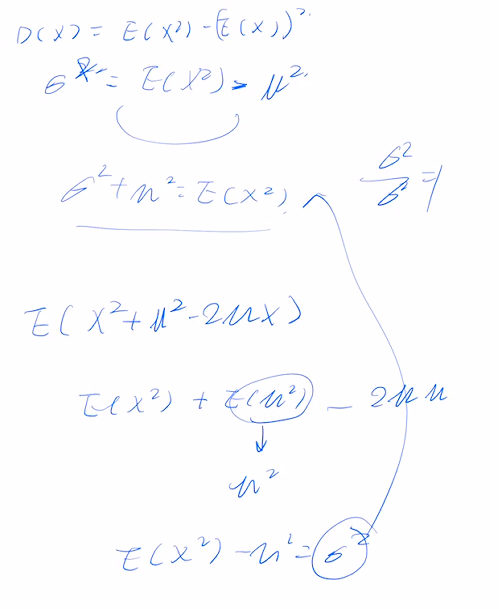 D(X) = E(X²) - (E(X))²
σ² = E(X²) - μ²
σ² + μ² = E(X²)
σ²/σ² = 1
E(X² + μ² - 2μX)
E(X²) + E(μ²) - 2μμ
μ²
E(X²) - μ² = σ²